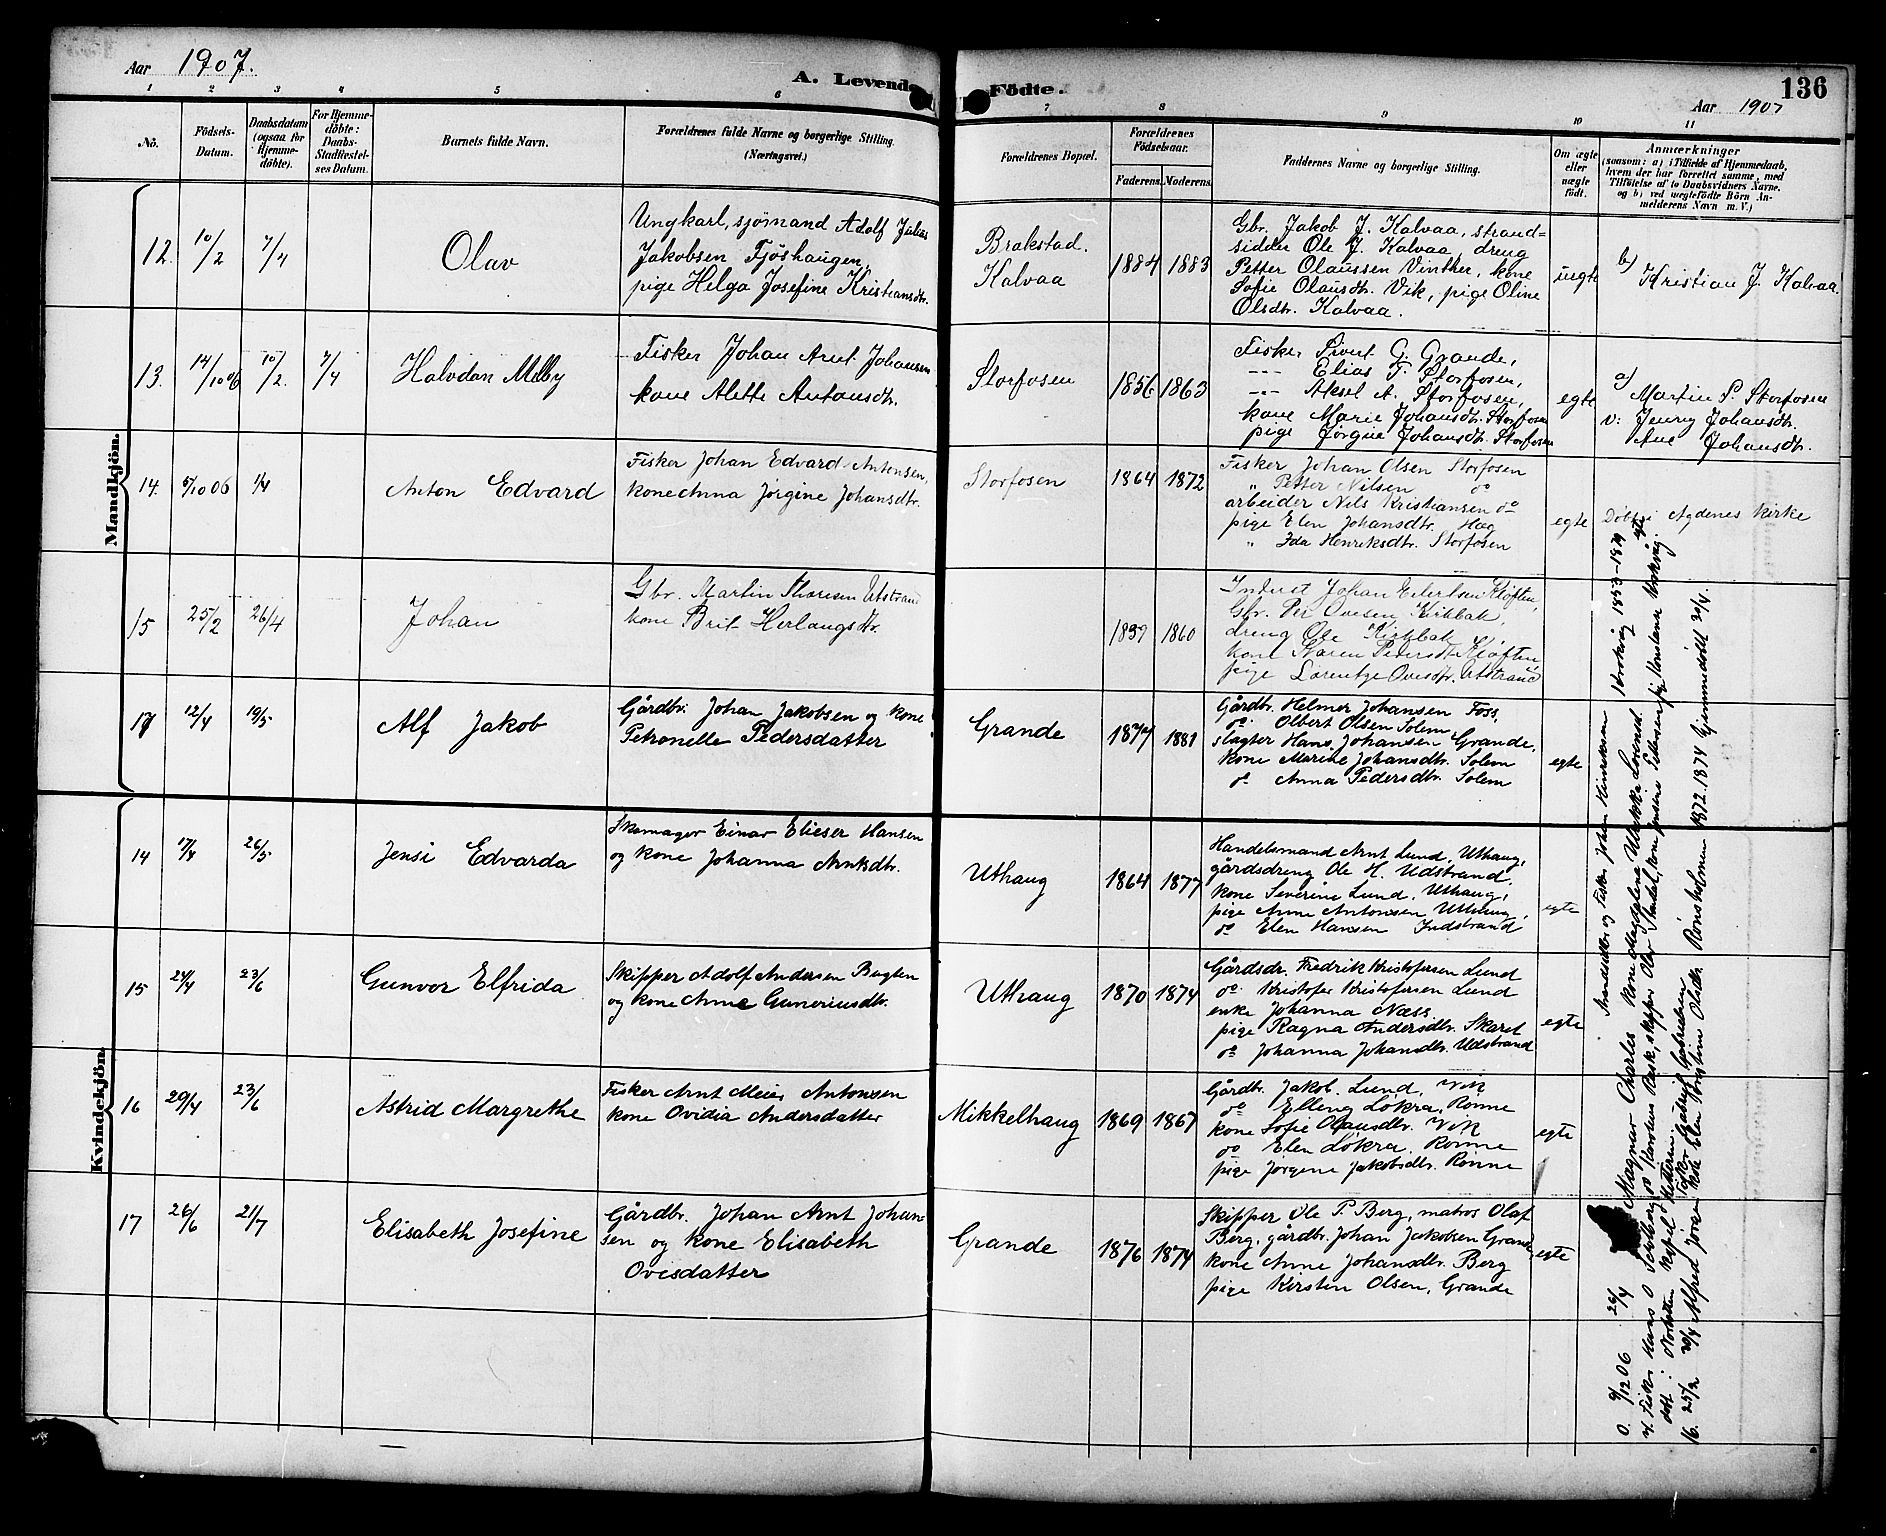 Aar 1907.
A. Levende
Födte.
136
Aar 1907
1 2 3 4 5 6 7 8 9 10 11
No.
Födsels-
Datum.
Daabsdatum
(ogsaa for
Hjemme-
döbte).
For Hjemme-
döbte:
Daabs-
Stadfæstel-
ses Datum.
Barnets fulde Navn.
Forældrenes fulde Navne og borgerlige Stilling.
(Næringsvei.)
Forældrenes Bopæl.
Forældrenes
Födselsaar.
Faderens. Moderens.
Faddernes Navne og borgerlige Stilling.
Om ægte
eller
uægte
födt.
Anmærkninger
(saasom: a) i Tilfælde af Hjemmedaab,
hvem der har forrettet samme, med
Tilföielse af to Daabsvidners Navne,
og b) ved uægtefödte Börn An-
melderens Navn m. V.)
Mandkjön.
12. 10/2 7/4 Olav
Ungkarl, sjømand Adolf Julius
Jakobsen Fjøshaugen,
pige Helga Josefine Kristiansdtr.
Brakstad.
Kalvaa
1884 1883
Gbr. Jakob J. Kalvaa, strand-
sidder Ole J. Kalvaa, dreng
Petter Olaussen Vinther, kone
Sofie Olausdtr. Vik, pige Oline
Olsdtr. Kalvaa.
uegte
b) Kristian J. Kalvaa.
13. 14/10 06 10/2. 7/4 Halvdan Melby
Fisker Johan Arnt Johansen
kone Alette Antonsdtr.
Storfosen
1856 1863
Fisker Sivert G. Grande,
--- Elias T. Storfosen,
--- Aksel A. Storfosen,
kone Marie Johansdtr. Storfosen
pige Jørgine Johansdtr. Storfosen
egte
a) Martin P. Storfosen
v: Jenny Johansdtr.
Ane Johansdtr.
14. /10 06 1/4 Anton Edvard
Fisker Johan Edvard Antonsen,
kone Anna Jørgine Johansdtr.
Storfosen
1864 1872
Fisker Johan Olsen Storfosen
" Petter Nilsen do
arbeider Nils Kristiansen do
pige Elen Johansdtr. Hag
" Ida Henriksdtr. Storfosen
egte
Døbt i Agdenes kirke
15 25/2 26/4 Johan
Gbr. Martin Thoresen Utstrand
kone Brit Herlaugsdtr.
1859 1860
Inderst Johan Eilertsen Kløften,
Gbr. Per Ovesen Kirkbak,
dreng Ole Kirkbak,
kone Karen Pedersdtr. Kløften
pige Lorentze Ovesdtr. Utstrand
17 12/4 19/5 Alf Jakob
Gårdbr. Johan Jakobsen og kone
Petronelle Pedersdatter
Grande
1877 1881
Gårdbr. Helmer Johansen Foss,
do. Olbert Olsen Solem
slagter Hans Johansen Grande,
kone Marine Johansdtr. Solem
do Anna Pedersdtr. Solem
egte
Kvindekjön.
14 17/4 26/5 Jensi Edvarda
Skomager Einar Elieser Hansen
og kone Johanna Arntsdtr.
Uthaug
1864 1877
Handelsmand Arnt Lund, Uthaug,
gårdsdreng Ole H. Udstrand.
kone Severine Lund, Uthaug,
pige Anne Antonsen Uthaug,
do Elen Hansen Indstrand
egte
15 24/4 23/6 Gunvor Elfrida
Skipper Adolf Andersen Bugten
og kone Anne Guneriusdtr.
Uthaug
1870 1874
Gårdsdr. Fredrik Kristofersen Lund
do. Kristofer Kristofersen Lund
enke Johanna Næss
pige Ragna Andersdtr. Skaret
do Johanna Johansdtr. Udstrand
egte
16 29/4 23/6 Astrid Margrethe
Fisker Arnt Meier Antonsen
kone Ovidia Andersdatter
Mikkelhaug
1869 1867
Gårdbr. Jakob Lund, Vik
do Elling Løkra, Rønne
kone Sofie Olausdtr. Vik
do Elen Løkra, Rønne
pige Jørgine Jakobsdtr. Rønne
egte
17 26/6 21/7 Elisabeth Josefine
Gårdbr. Johan Arnt Johan-
sen og kone Elisabeth
Ovisdatter
Grande
1876 1874
Skipper Ole P. Berg, matros Olaf
Berg, gårdbr. Johan Jakobsen Grande
kone Anne Johansdtr. Berg
pige Kirsten Olsen, Grande
egte
0. 9/12 06 26/4 Magnar Charles
Strandsidder og Fisker Johan Hinriksen
kone Magdalena Ulrikke 1853-1871
16. 25/2 20/4 Alfred
Elen Kristine Olsdtr. Rønsholmen 1872.1874 Hjemmedøbt